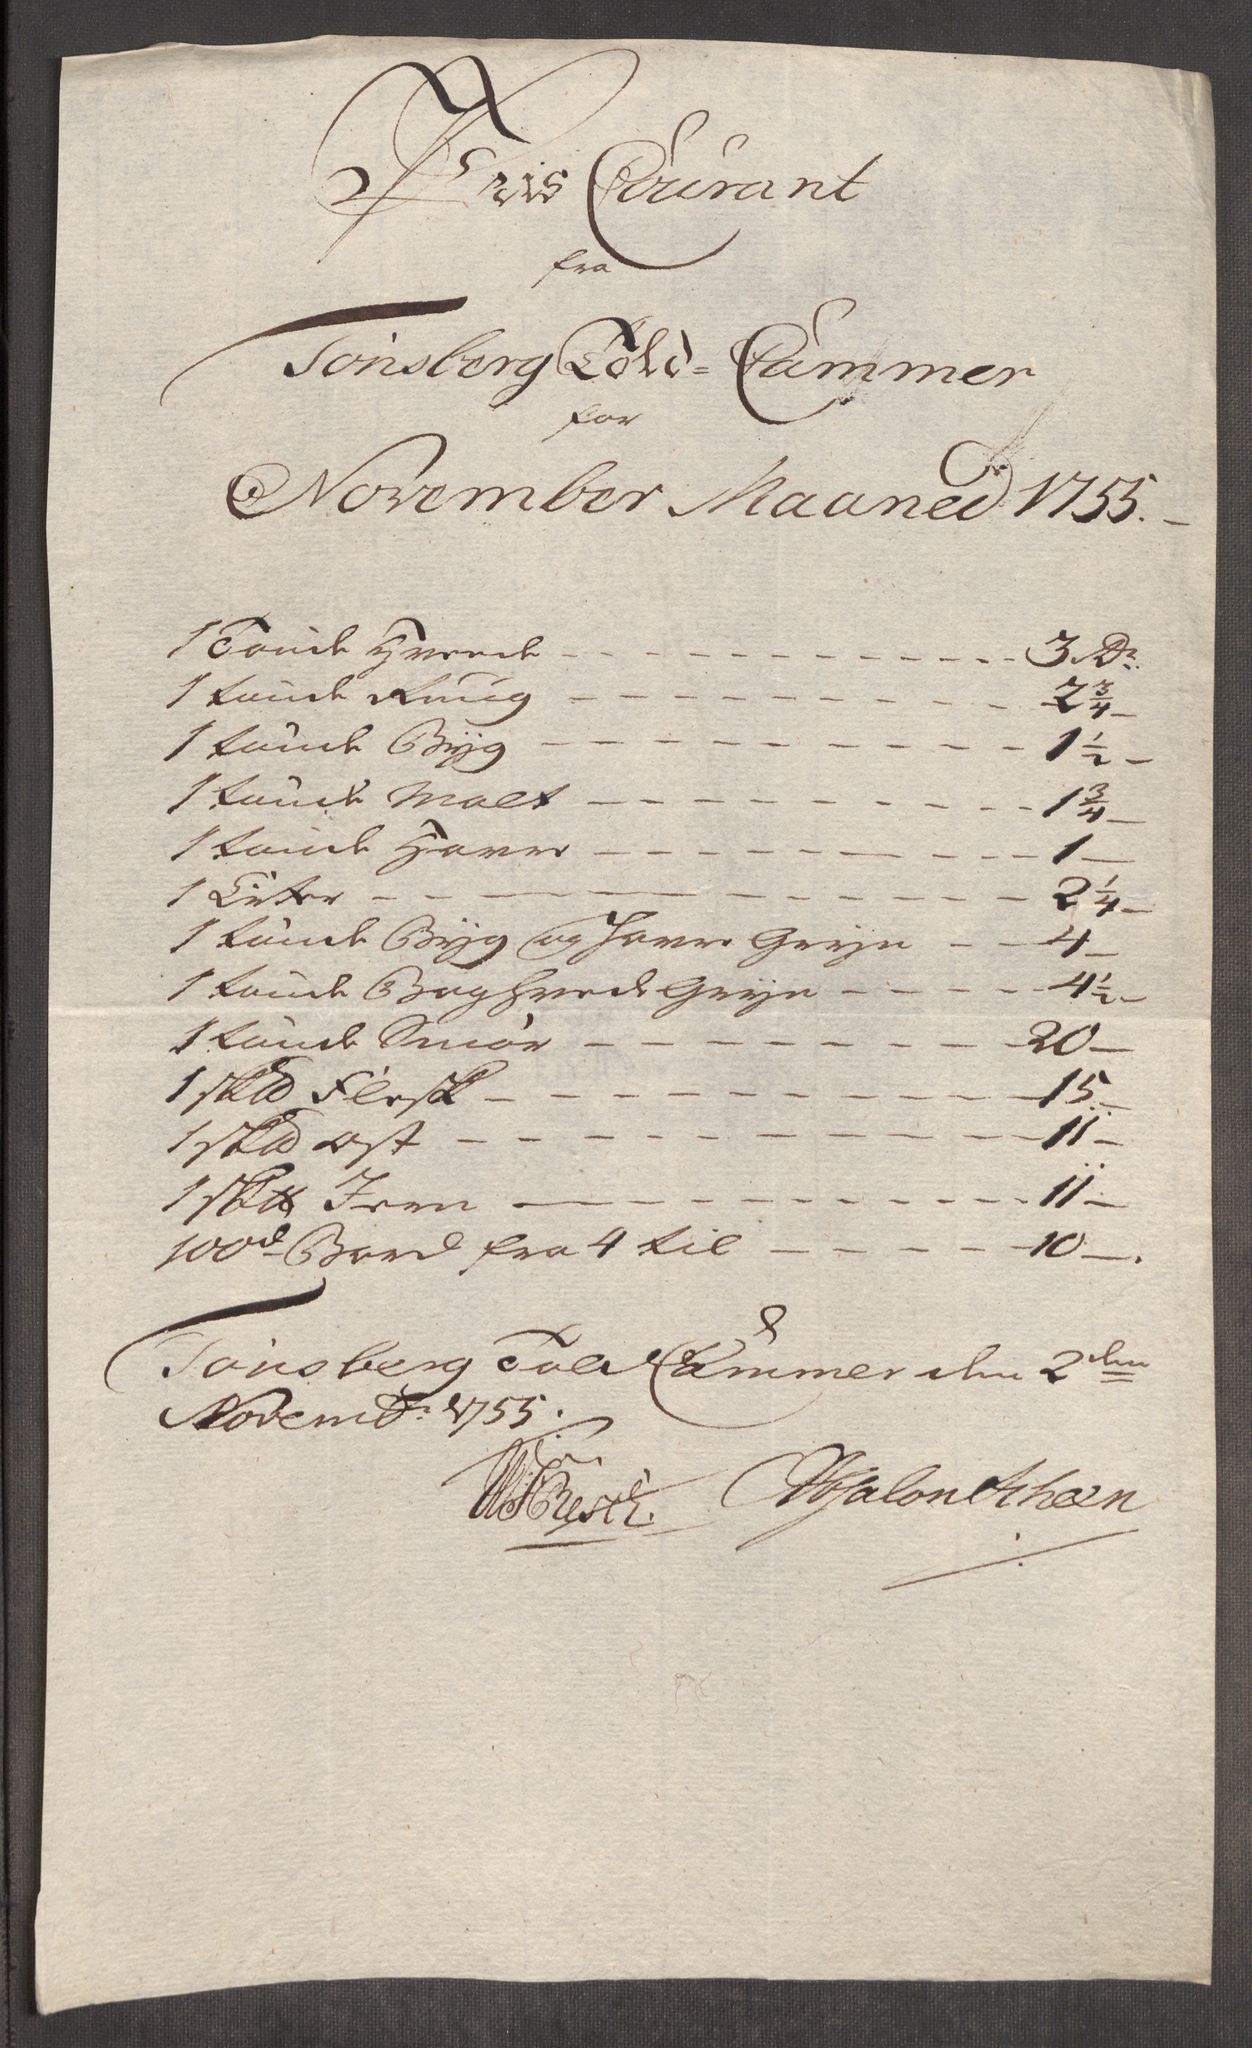 Pris Courant
fra
Tönsberg Told=Cammer
for
November Maaned 1755.
1 Tönde Hveede 3 Dr.
1 tönde Rüug 2 3/4
1 tönde Býg 1 1/2
1 tönde Malt 1 3/4
1 tönde Havre 1
1 Erter 2 1/4
1 tönde Býg og Havre Grýn 4
1 tönde Boghvede Grýn 4 1/2
1 tönde Smör 20
1 sk℔ Flesk 15
1 sk℔ Ost 11
1 sk℔ Jern 11
100d Bord fra 4 til 10
Tönsberg Told Cammer den 2den
Novembr. 1755.